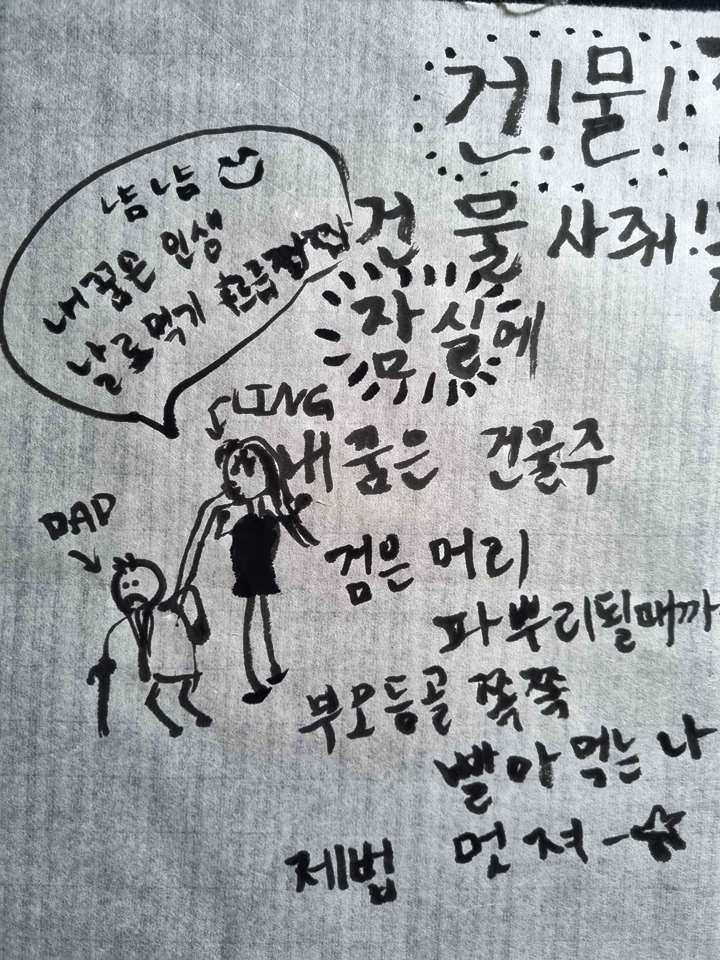 건!물!
냠냠
내꿈은 인생
날로먹기 흐름짭짭
건물 사줘!
잠실에
LING
내 꿈은 건물주
DAD
검은 머리
파뿌리될때까
부모등골 쪽쪽
빨아 먹는 나
제법 멋져-☆